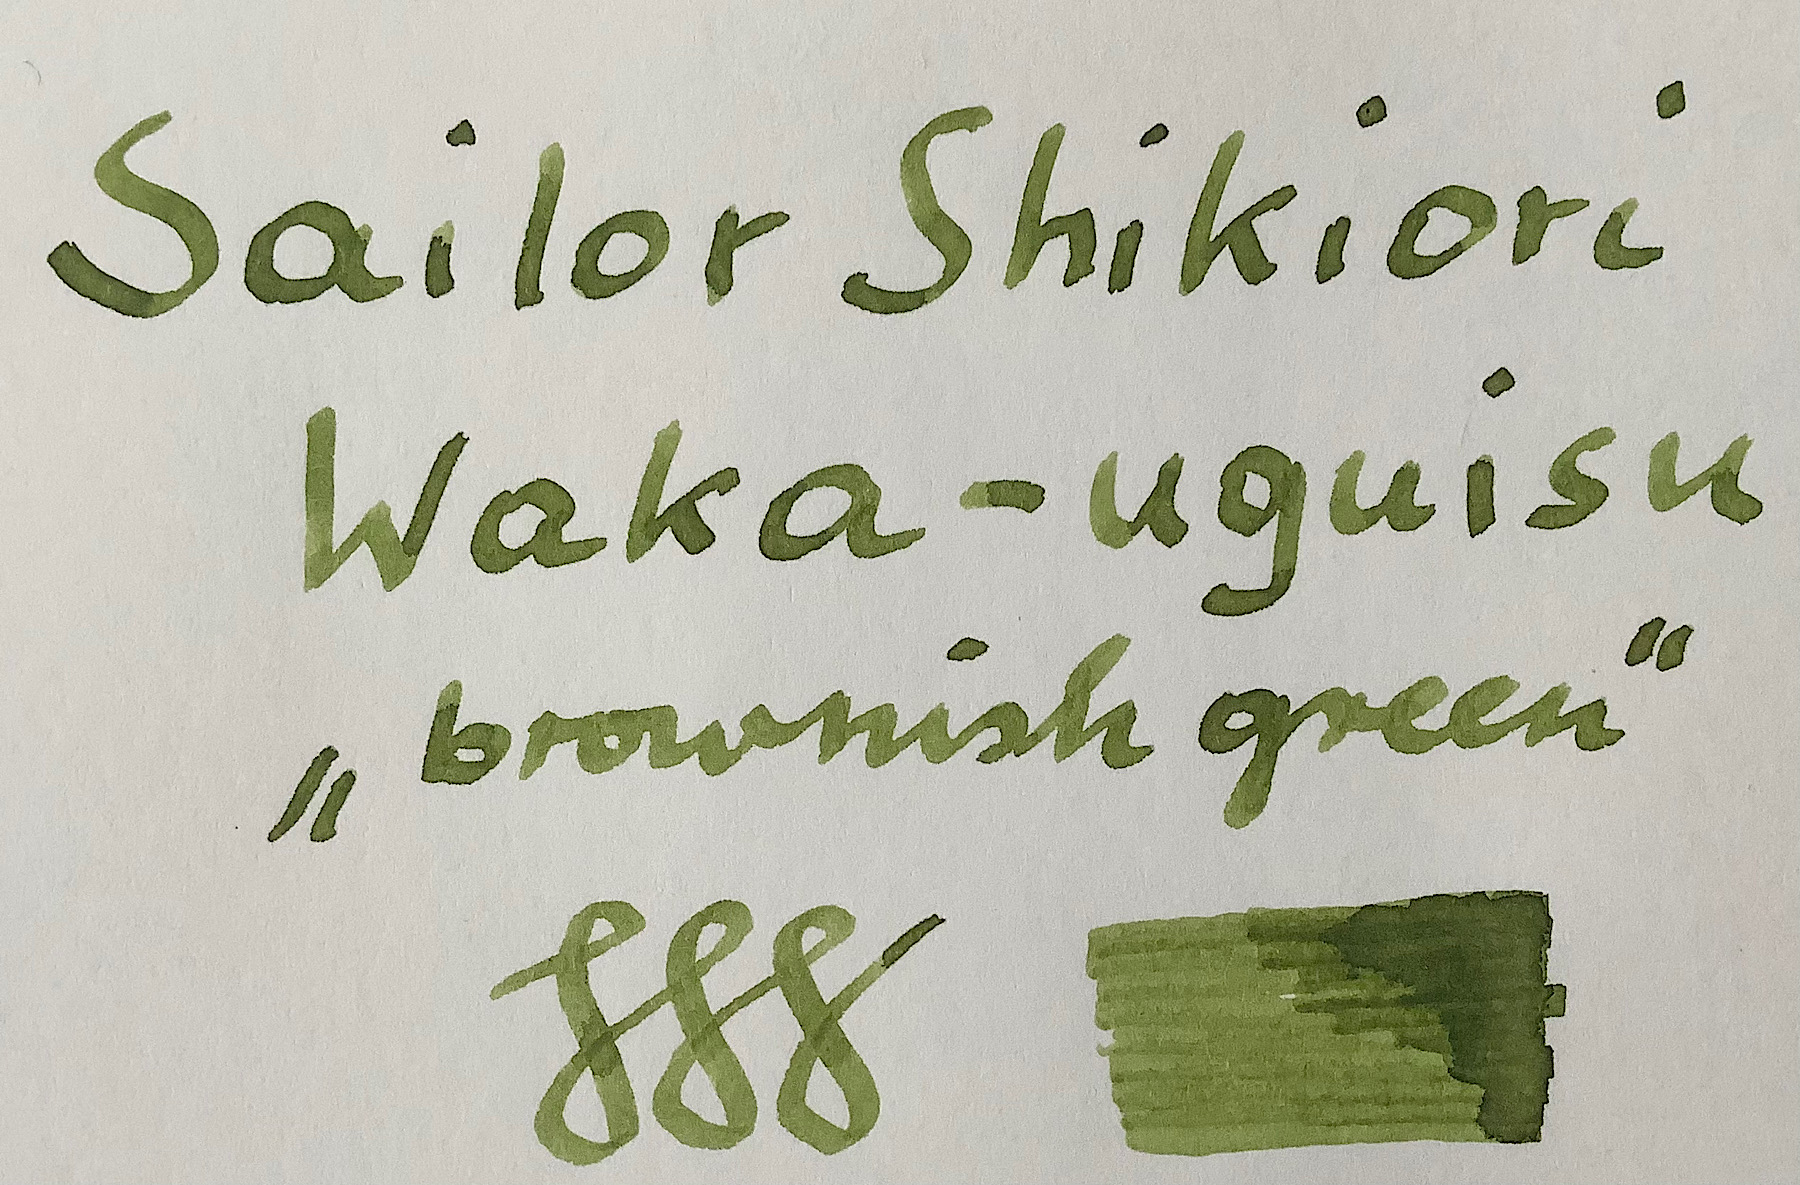 Sailor Shikiori
Waka-uguisu
„brownish green“